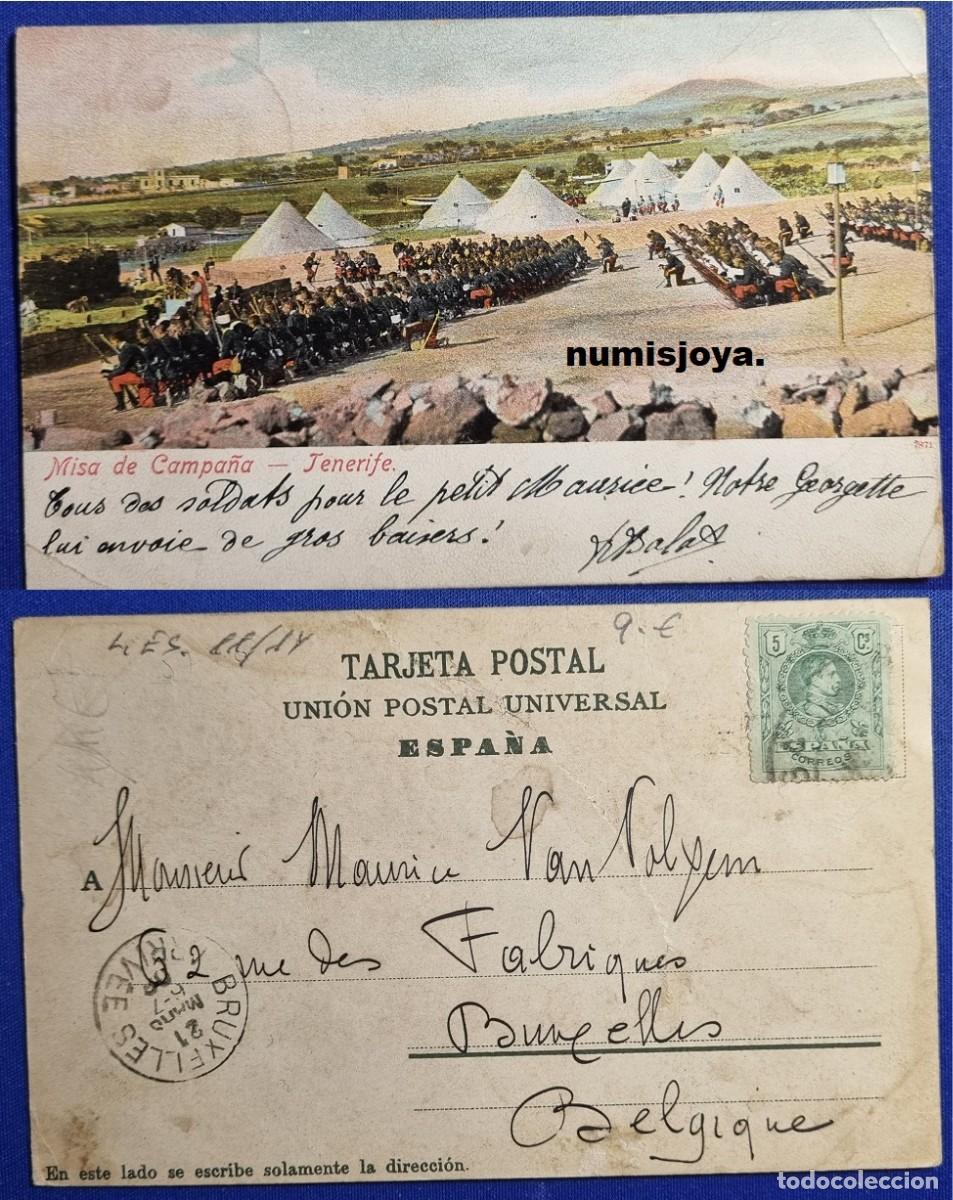 numisjoya.
7871
Misa de Campaña — Tenerife.
Tous des soldats pour le petit Maurice! Notre Georgette
lui envoie de gros baisers!
9.€
TARJETA POSTAL
UNIÓN POSTAL UNIVERSAL
ESPAÑA
5 Cs
ESPAÑA
CORREOS
A Monsieur Maurice Van Volxem
62 rue des Fabriques
Bruxelles
Belgique
BRUXELLES
21
6-7
En este lado se escribe solamente la dirección.
todocoleccion